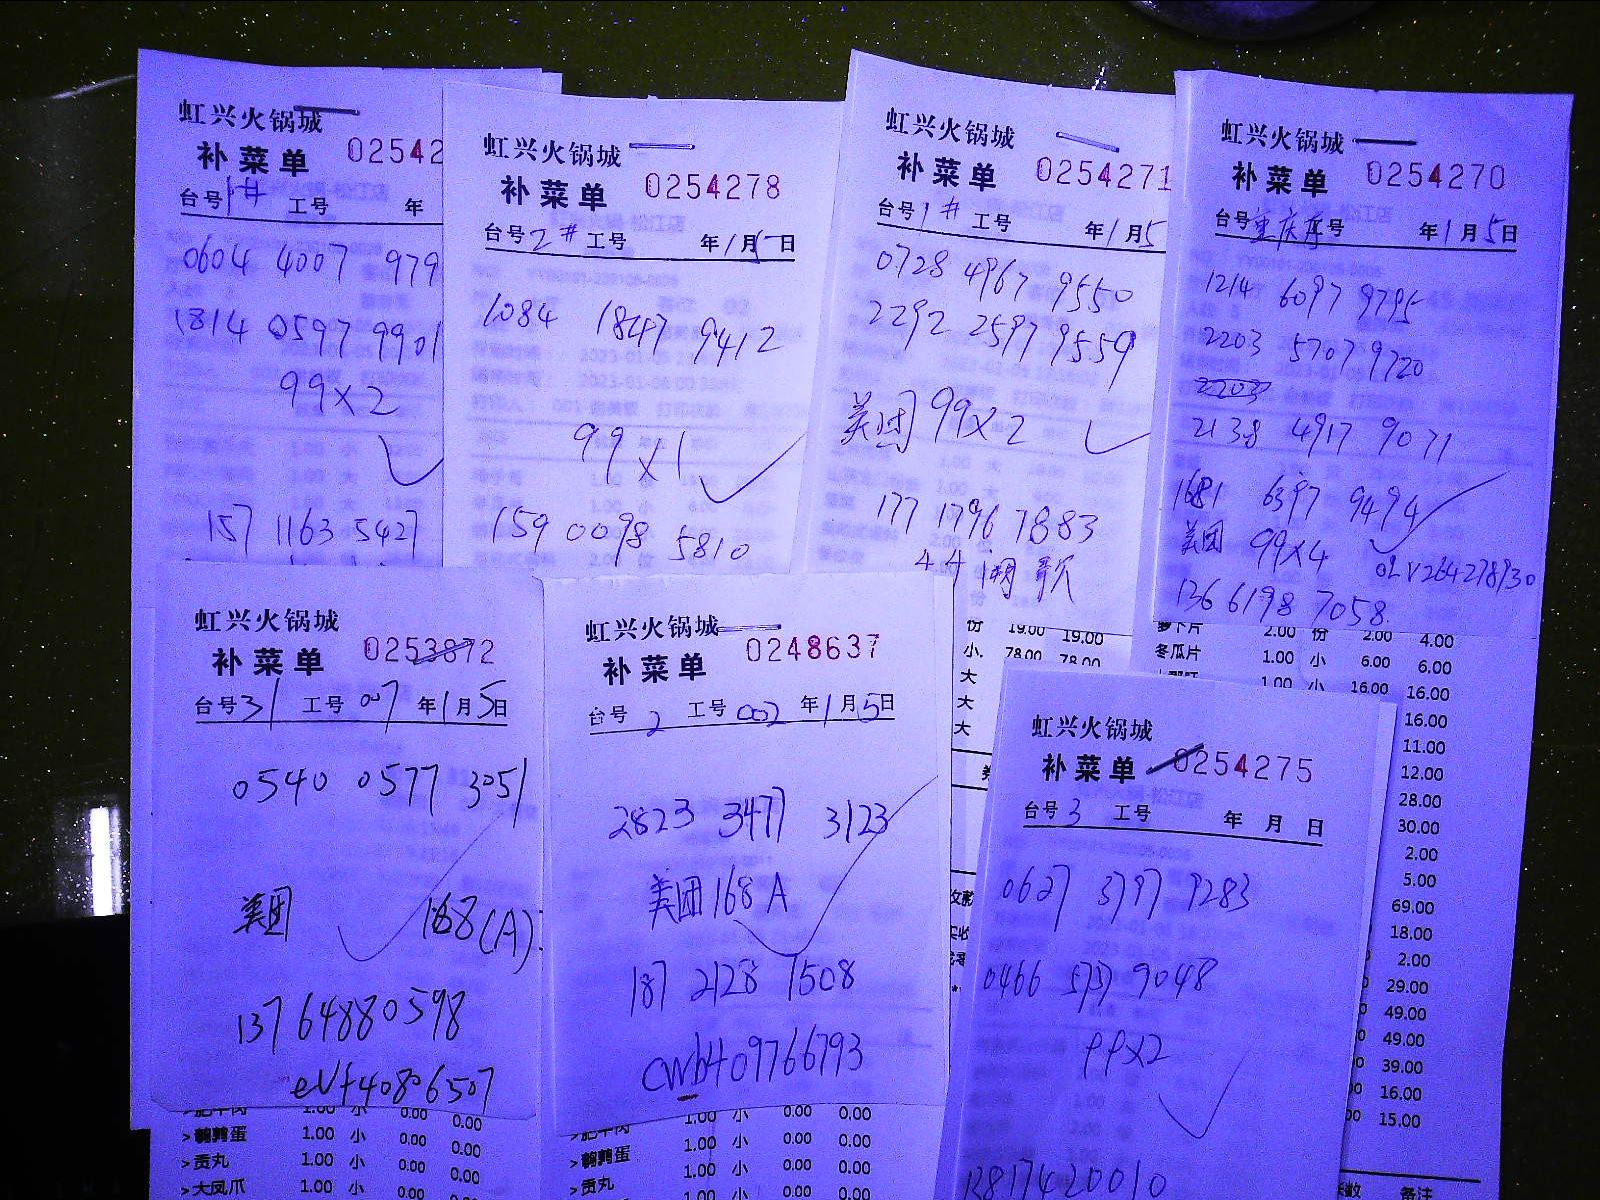 虹兴火锅城
补菜单 02542
台号 1# 工号 年
0604 4007 979
1814 0597 9901
99×2
157 1163 5427
虹兴火锅城
补菜单 0254278
台号 2# 工号 年 1 月 5 日
1084 1847 9412
99×1
159 0098 5810
虹兴火锅城
补菜单 0254271
台号 1# 工号 年 1 月 5
0728 4967 9550
2292 2597 9559
美团 99×2
177 1796 7883
虹兴火锅城
补菜单 0254270
台号 重庆厅 号 年 1 月 5 日
1214 6097 9795
2203 5707 9720
2203
2138 4917 9071
1681 6397 9494
美团 99×4
136 6198 7058
虹兴火锅城
补菜单 0253872
台号 31 工号 007 年 1 月 5 日
0540 0577 3051
美团 168(A)
137 6488 0598
eVf40806507
虹兴火锅城
补菜单 0248637
台号 2 工号 002 年 1 月 5 日
2823 3477 3123
美团 168 A
187 2128 7508
cwb409766793
虹兴火锅城
补菜单 0254275
台号 3 工号 年 月 日
0627 3797 9283
0466 5737 9048
99×2
13817420010
份 19.00 19.00
小 78.00 78.00
大
大
大
萝卜片 2.00 份 2.00 4.00
冬瓜片 1.00 小 6.00 6.00
1.00 小 16.00 16.00
16.00
11.00
12.00
28.00
30.00
2.00
5.00
69.00
18.00
2.00
29.00
49.00
49.00
39.00
16.00
15.00
备注
>肥牛肉 1.00 小 0.00 0.00
>鹌鹑蛋 1.00 小 0.00 0.00
>贡丸 1.00 小 0.00 0.00
>大凤爪 1.00 小 0.00 0.00
>肥牛肉 1.00 小 0.00 0.00
>鹌鹑蛋 1.00 小 0.00 0.00
>贡丸 1.00 小 0.00 0.00
1.00 小 0.00 0.00